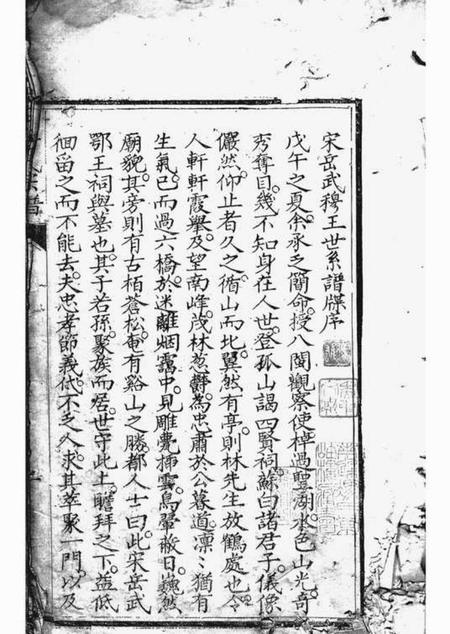 宋岳武穆王世系譜牒序
戊午之夏余承乏簡命授八閩觀察使棹過聖湖水色山光奇
秀奪目幾不知身在人世登孤山謁四賢祠蘇白諸君子儀像
儼然仰止者久之循山而北翼然有亭則林先生放鶴處也令
人軒軒霞舉及望南峰茂林葱欝為忠肅於公墓道凛〻猶有
生氣已而過六橋於迷離烟靄中見雕甍揷雲鳥翬蔽日巍然
廟貌其旁則有古栢蒼松奄有谿山之勝都人士曰此宋岳武
鄂王祠與墓也其子若孫聚族而居世守此土瞻拜之下益低
徊留之而不能去夫忠孝節義代不乏人求其萃聚一門以及